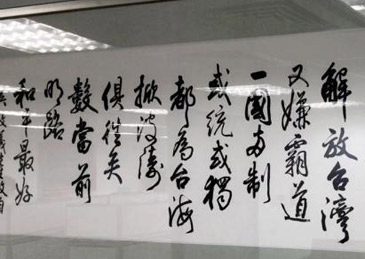 解放台灣
又嫌霸道
一國兩制
或統或獨
都為台海
掀波濤
俱往矣
數當前
明路
和平最好